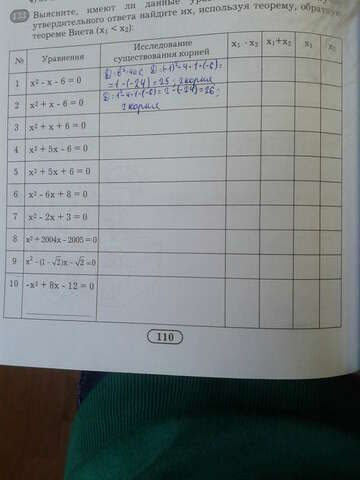 133 Выясните, имеют ли данные
утвердительного ответа найдите их, используя теорему, обратную
теореме Виета (x₁ < x₂):
№ Уравнения Исследование существования корней x₁ · x₂ x₁+x₂ x₁ x₂
1 x² - x - 6 = 0 D=b²-4ac D=(-1)²-4·1·(-6)=
=1-(-24)=25; 2 корня
2 x² + x - 6 = 0 2 корня
3 x² + x + 6 = 0
4 x² + 5x - 6 = 0
5 x² + 5x + 6 = 0
6 x² - 6x + 8 = 0
7 x² - 2x + 3 = 0
8 x² + 2004x - 2005 = 0
9 x² - (1 - √2)x - √2 = 0
10 -x² + 8x - 12 = 0
110